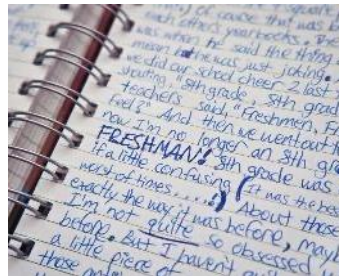 of course that was b
each others yearbooks. The
was when he said the thing
mean but he was just joking.
we did our school cheer 2 last
shouting, "8th grade, 8th grad
teachers said, "Freshmen, Fr
feel?" And then we went out f
now I'm no longer an 8th gra
FRESHMAN! 8th grade was
if a little confusing (It was the bes
worst of times.....) About those
exactly the way it was before, may
I'm not quite so obsessed
before. But I haven't
a little piece of
those